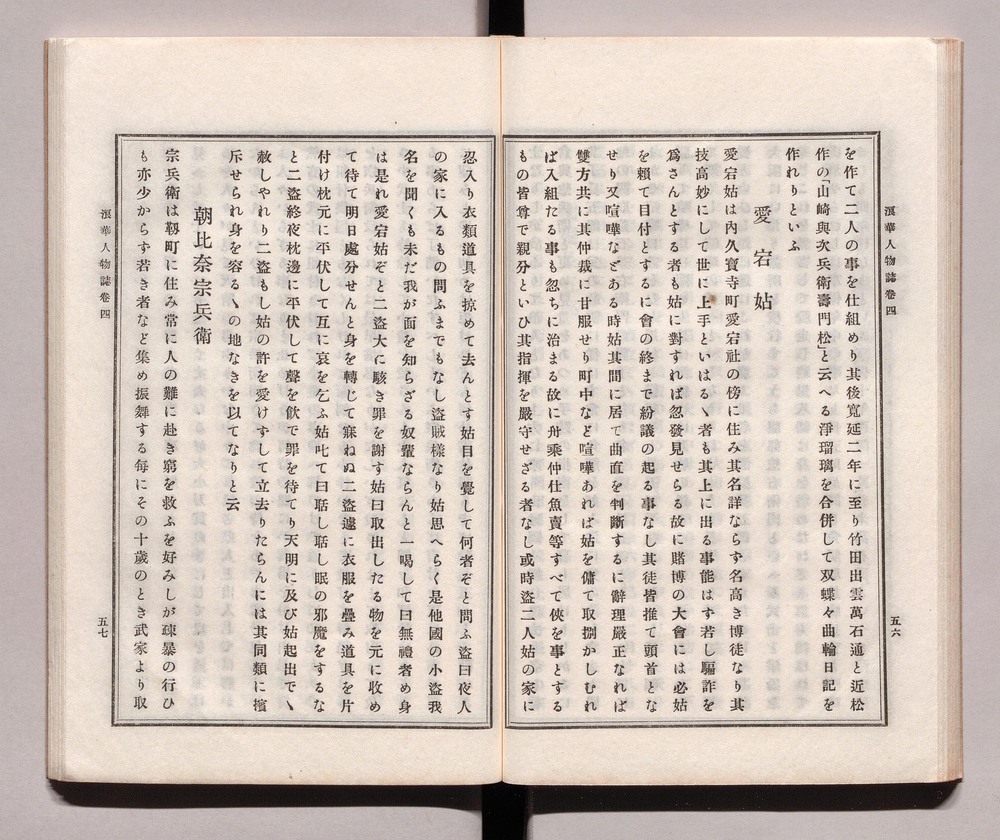 浪華人物誌卷四
を作て二人の事を仕組めり其後寬延二年に至り竹田出雲萬石通と近松
作の「山崎與次兵衛壽門松」と云へる淨瑠璃を合併して双蝶々曲輪日記を
作れりといふ
愛宕姑
愛宕姑は內久寶寺町愛宕社の傍に住み其名詳ならず名高き博徒なり其
技高妙にして世に上手といはるヽ者も其上に出る事能はす若し騙詐を
爲さんとする者も姑に對すれば忽發見せらる故に賭博の大會には必姑
を賴て目付とするに會の終まで紛議の起る事なし其徒皆推て頭首とな
せり又喧嘩などある時姑其間に居て曲直を判斷するに辭理嚴正なれば
雙方共に其仲裁に甘服せり町中など喧嘩あれば姑を傭て取捌かしむれ
ば入組たる事も忽ちに治まる故に舟乘仲仕魚賣等すべて俠を事とする
もの皆尊で親分といひ其指揮を嚴守せざる者なし或時盜二人姑の家に
五六
忍入り衣類道具を掠めて去んとす姑目を覺して何者ぞと問ふ盜曰夜人
の家に入るもの問ふまでもなし盜賊樣なり姑思へらく是他國の小盜我
名を聞くも未だ我が面を知らざる奴輩ならんと一喝して曰無禮者め身
は是れ愛宕姑ぞと二盜大に駭き罪を謝す姑曰取出したる物を元に收め
て待て明日處分せんと身を轉じて寐ねぬ二盜遽に衣服を疊み道具を片
付け枕元に平伏して互に哀を乞ふ姑叱て曰聒し聒し眠の邪魔をするな
と二盜終夜枕邊に平伏して聲を飮で罪を待てり天明に及び姑起出でヽ
赦しやれり二盜もし姑の許を愛けずして立去りたらんには其同類に擯
斥せられ身を容るヽの地なきを以てなりと云
朝比奈宗兵衛
宗兵衛は靱町に住み常に人の難に赴き窮を救ふを好みしが疎暴の行ひ
も亦少からす若き者など集め振舞する每にその十歲のとき武家より取
浪華人物誌卷四
五七